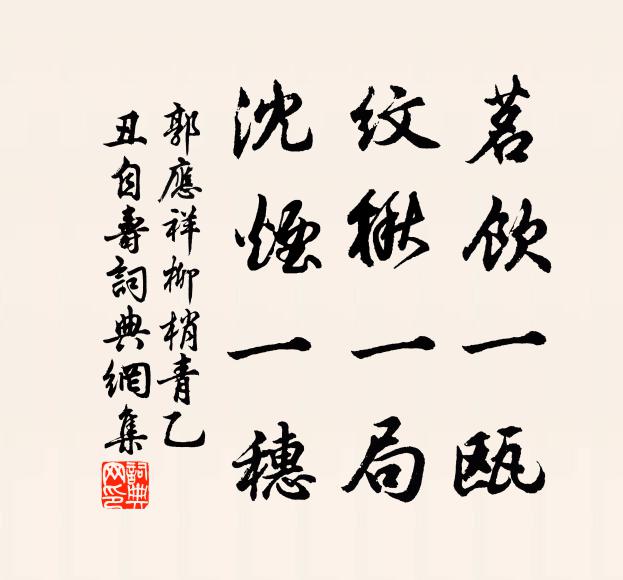 茗飲一甌
紋楸一局
沈煙一穗
郭應祥柳梢青乙
丑自壽詞典網集
詞典網印